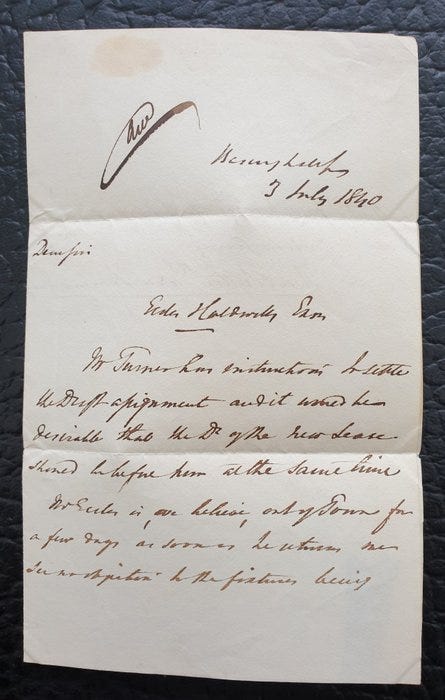 3 July 1840
Dear Sir
Eccles
Mr Turner has instructions to settle
the Draft assignment and it would be
desirable that the Dft of the new Lease
should be before him at the same time
Mr Eccles is, we believe, out of Town for
a few days as soon as he returns we
see no objection to the fixtures being